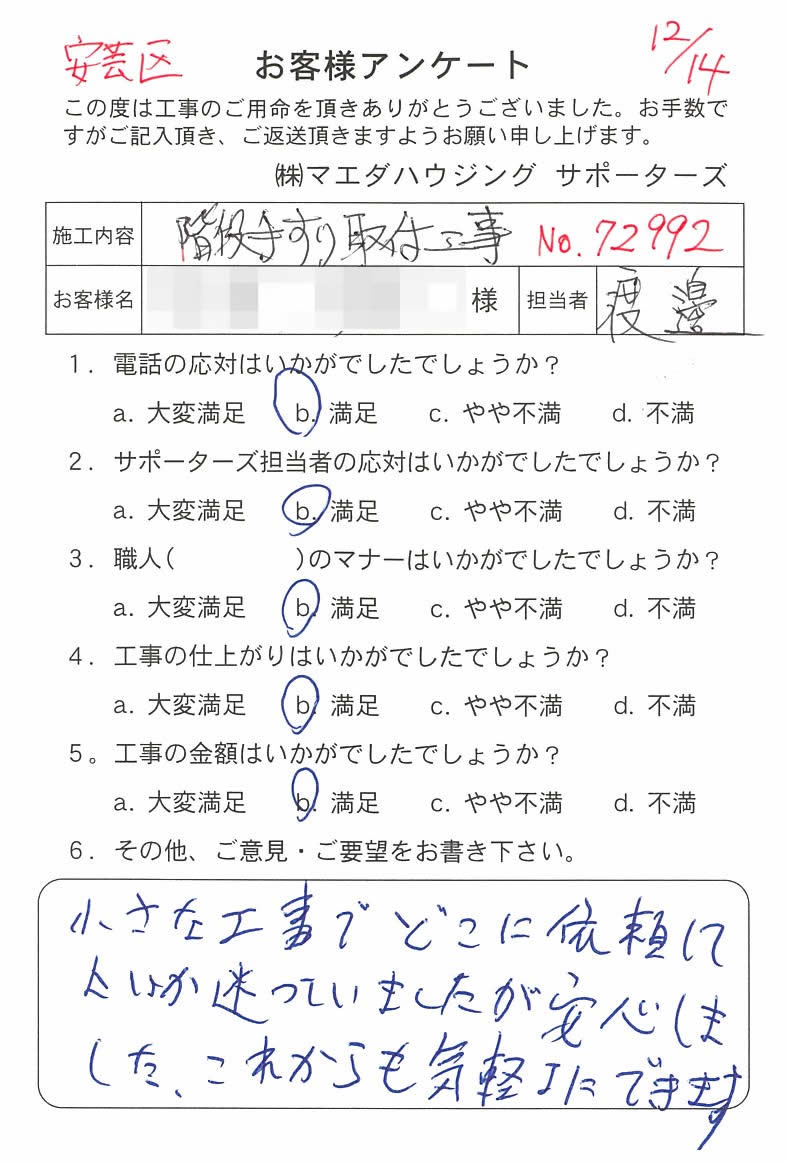 安芸区 お客様アンケート 12/14
この度は工事のご用命を頂きありがとうございました。お手数で
すがご記入頂き、ご返送頂きますようお願い申し上げます。
㈱マエダハウジング サポーターズ
施工内容 階段手すり取付工事 No.72992
お客様名 様 担当者 渡邊
1. 電話の応対はいかがでしたでしょうか？
a. 大変満足 b. 満足 c. やや不満 d. 不満
2. サポーターズ担当者の応対はいかがでしたでしょうか？
a. 大変満足 b. 満足 c. やや不満 d. 不満
3. 職人( )のマナーはいかがでしたでしょうか？
a. 大変満足 b. 満足 c. やや不満 d. 不満
4. 工事の仕上がりはいかがでしたでしょうか？
a. 大変満足 b. 満足 c. やや不満 d. 不満
5。工事の金額はいかがでしたでしょうか？
a. 大変満足 b. 満足 c. やや不満 d. 不満
6. その他、ご意見・ご要望をお書き下さい。
小さな工事でどこに依頼して
よいか迷っていましたが安心しま
した、これからも気軽にできます